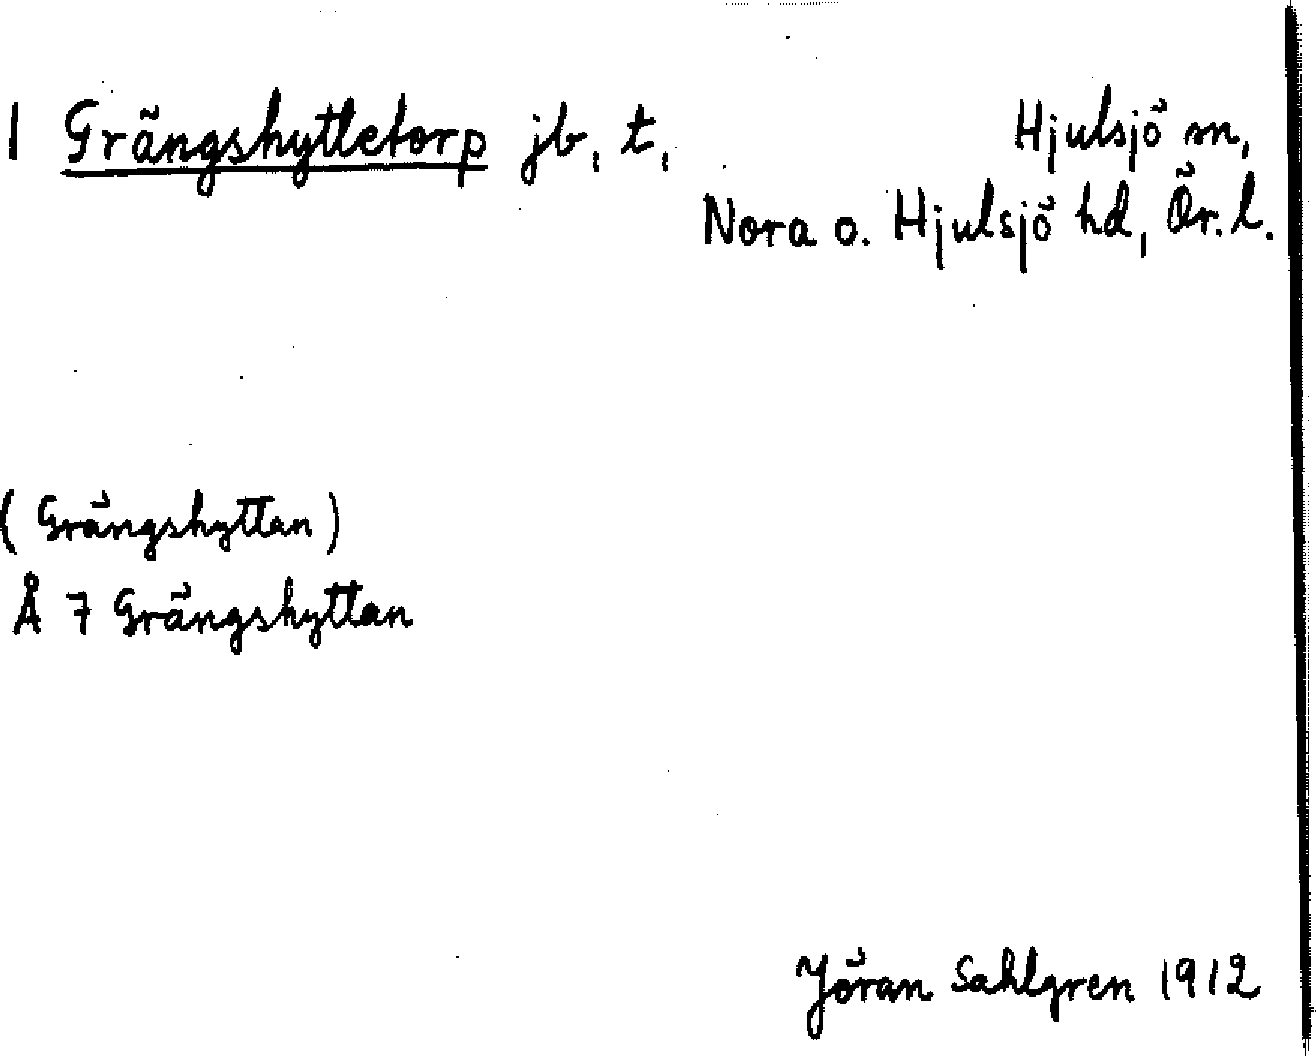 1 Grängshyttetorp jb, t, Hjulsjö sn,
Nora o. Hjulsjö hd, Ör. l.
(Grängshyttan)
Å 7 Grängshyttan
Jöran Sahlgren 1912